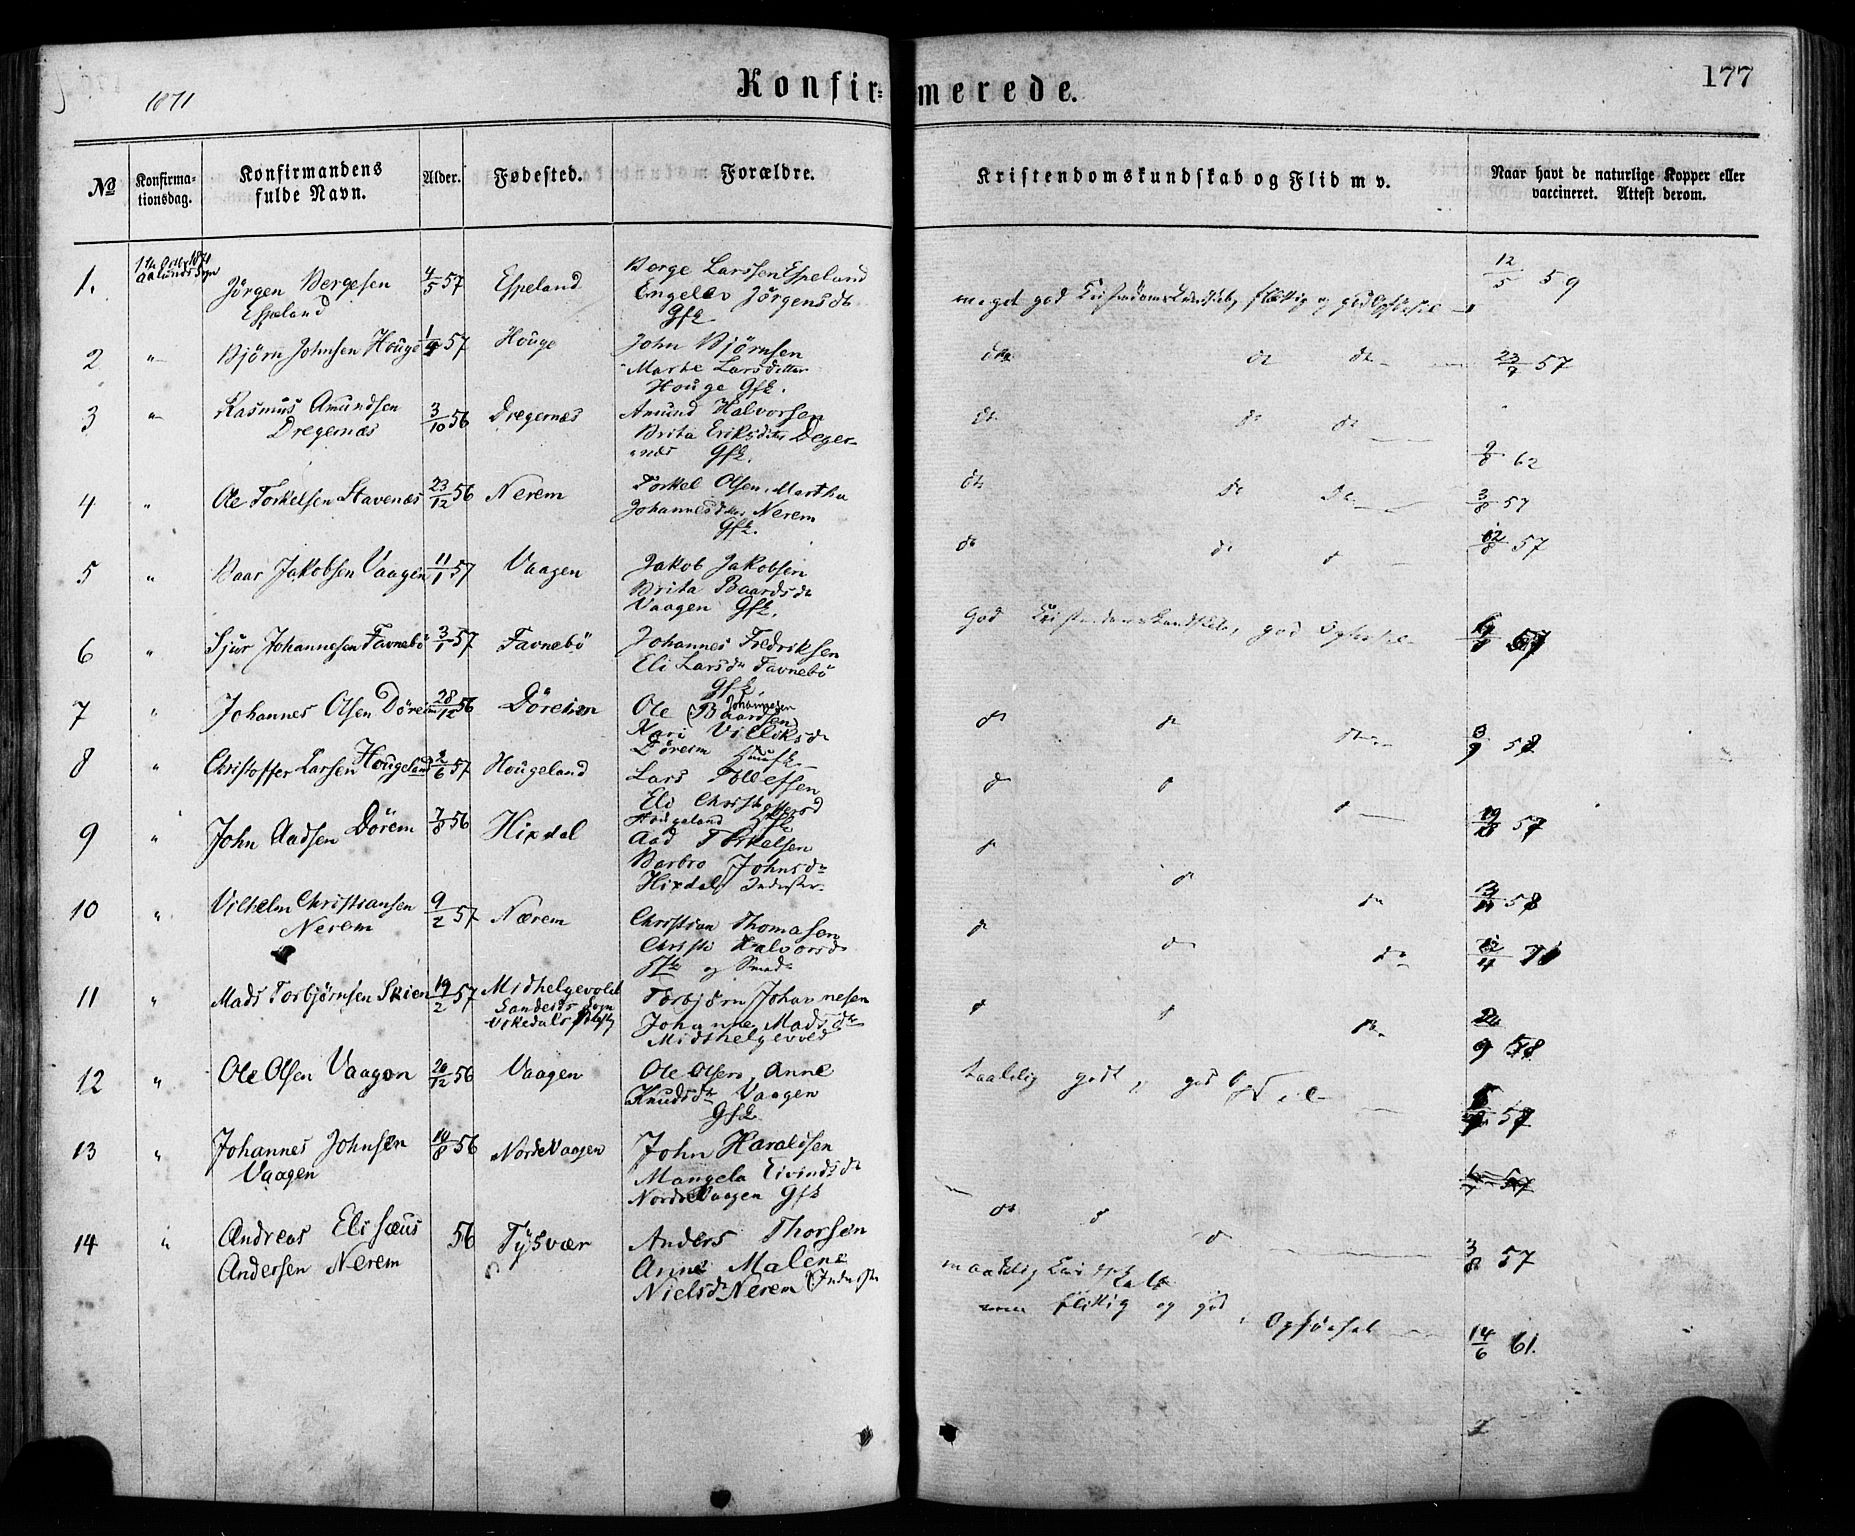 177
1871
Konfirmerede.
№
Konfirma-
tionsdag.
Konfirmandens
fulde Navn.
Alder.
Fødested.
Forældre.
Kristendomskundskab og Flid m v.
Naar havt de naturlige Kopper eller
vaccineret. Attest derom.
1.
Jørgen Bergesen
Espeland
4/5 57
Espeland
Berge Larssen Espeland
Engelev Jörgensdt
Gfk
meget god Kristendomskundskab, flittig og god Opførsel
12/5 59
2
"
Bjørn Johnsen Houge
1/4 57
Houge
John Bjørnsen
Marte Larsdatter
Houge Gfk.
dt dt dt
23/9 57
3
"
Rasmus Amundsen
Dregernæs
3/10 56
Dregernæs
Amund Halvorsen
Brita Eriksdtr Deger-
næs Gfk.
dt dt dt
9/8 62
4
"
Ole Torkelsen Stavenæs
23/12 56
Nerem
Torkel Olsen, Martha
Johannesdtr Nerem
Gfk.
dt dt dt
3/8 57
5
"
Baar Jakobsen Vaagen
11/1 57
Vaagen
Jakob Jakobsen
Brita Baardsdt
Vaagen Gfk.
dt dt d
12/8 57
6
"
Sjur Johannesen Favnebö
3/1 57
Favnebö
Johannes Fredriksen
Eli Larsdtr Favnebö
Gfk
God Kristendomskundskab, god Opførsel
57
7
"
Johannes Olsen Döreim
28/12 56
Döreim
Ole Johannesen
(Baardsen)
Kari Villiksd
Döreim
3/9 58
8
"
Christoffer Larsen Hougeland
2/6 57
Hougeland
Lars Tollefsen
Eli Christoffersd
Hougeland Gfk
19/ 57
9
"
John Aadsen Dörem
7/8 56
Hixdal
Aad Torkelsen
Barbro Johnsdtr
Hixdal Inderster
3/11 58
10
"
Vilhelm Christiansen
Nerem
9/2 57
Nærem
Christian Thomasen
Christi Halvorsd
og Smed
12/4 71
11
"
Mads Torbjørnsen Skien
19/2 57
Midhelgevold
Sandeids Sogn
Vikedals
Torbjørn Johannesen
Johanne Madsdtr
Midthelgevold
24/9 58
12
"
Ole Olsen Vaagen
20/12 56
Vaagen
Ole Olsen, Anne
Knudsdtr Vaagen
Gfk
taalelig godt, god
57
13
"
Johannes Johnsen
Vaagen
10/8 56
Nordre Vaagen
John Haraldsen
Mangela Eivindsdt
Nordre Vaagen Gfk
3/8 57
14
"
Andreas Elisæus
Andersen Nerem
56
Tysvær
Anders Thorsen
Anne Malene
Nielsdt Nerem (Inderster
maadelig
men flittig og god
Opførsel
14/6 61.